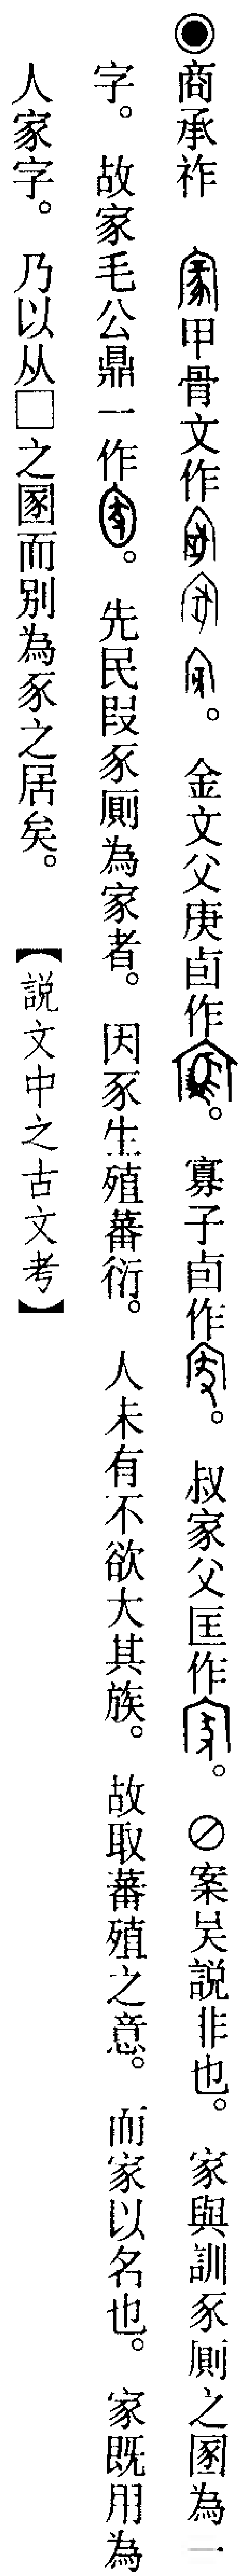 ◉商承祚　甲骨文作。金文父庚卣作。寡子卣作。叔家父匡作。⊘案吴説非也。家與訓豕厠之圂為一
字。故家毛公鼎一作。先民叚豕厠為家者。因豕生殖蕃衍。人未有不欲大其族。故取蕃殖之意。而家以名也。家既用為
人家字。乃以从□之圂而别為豕之居矣。【説文中之古文考】